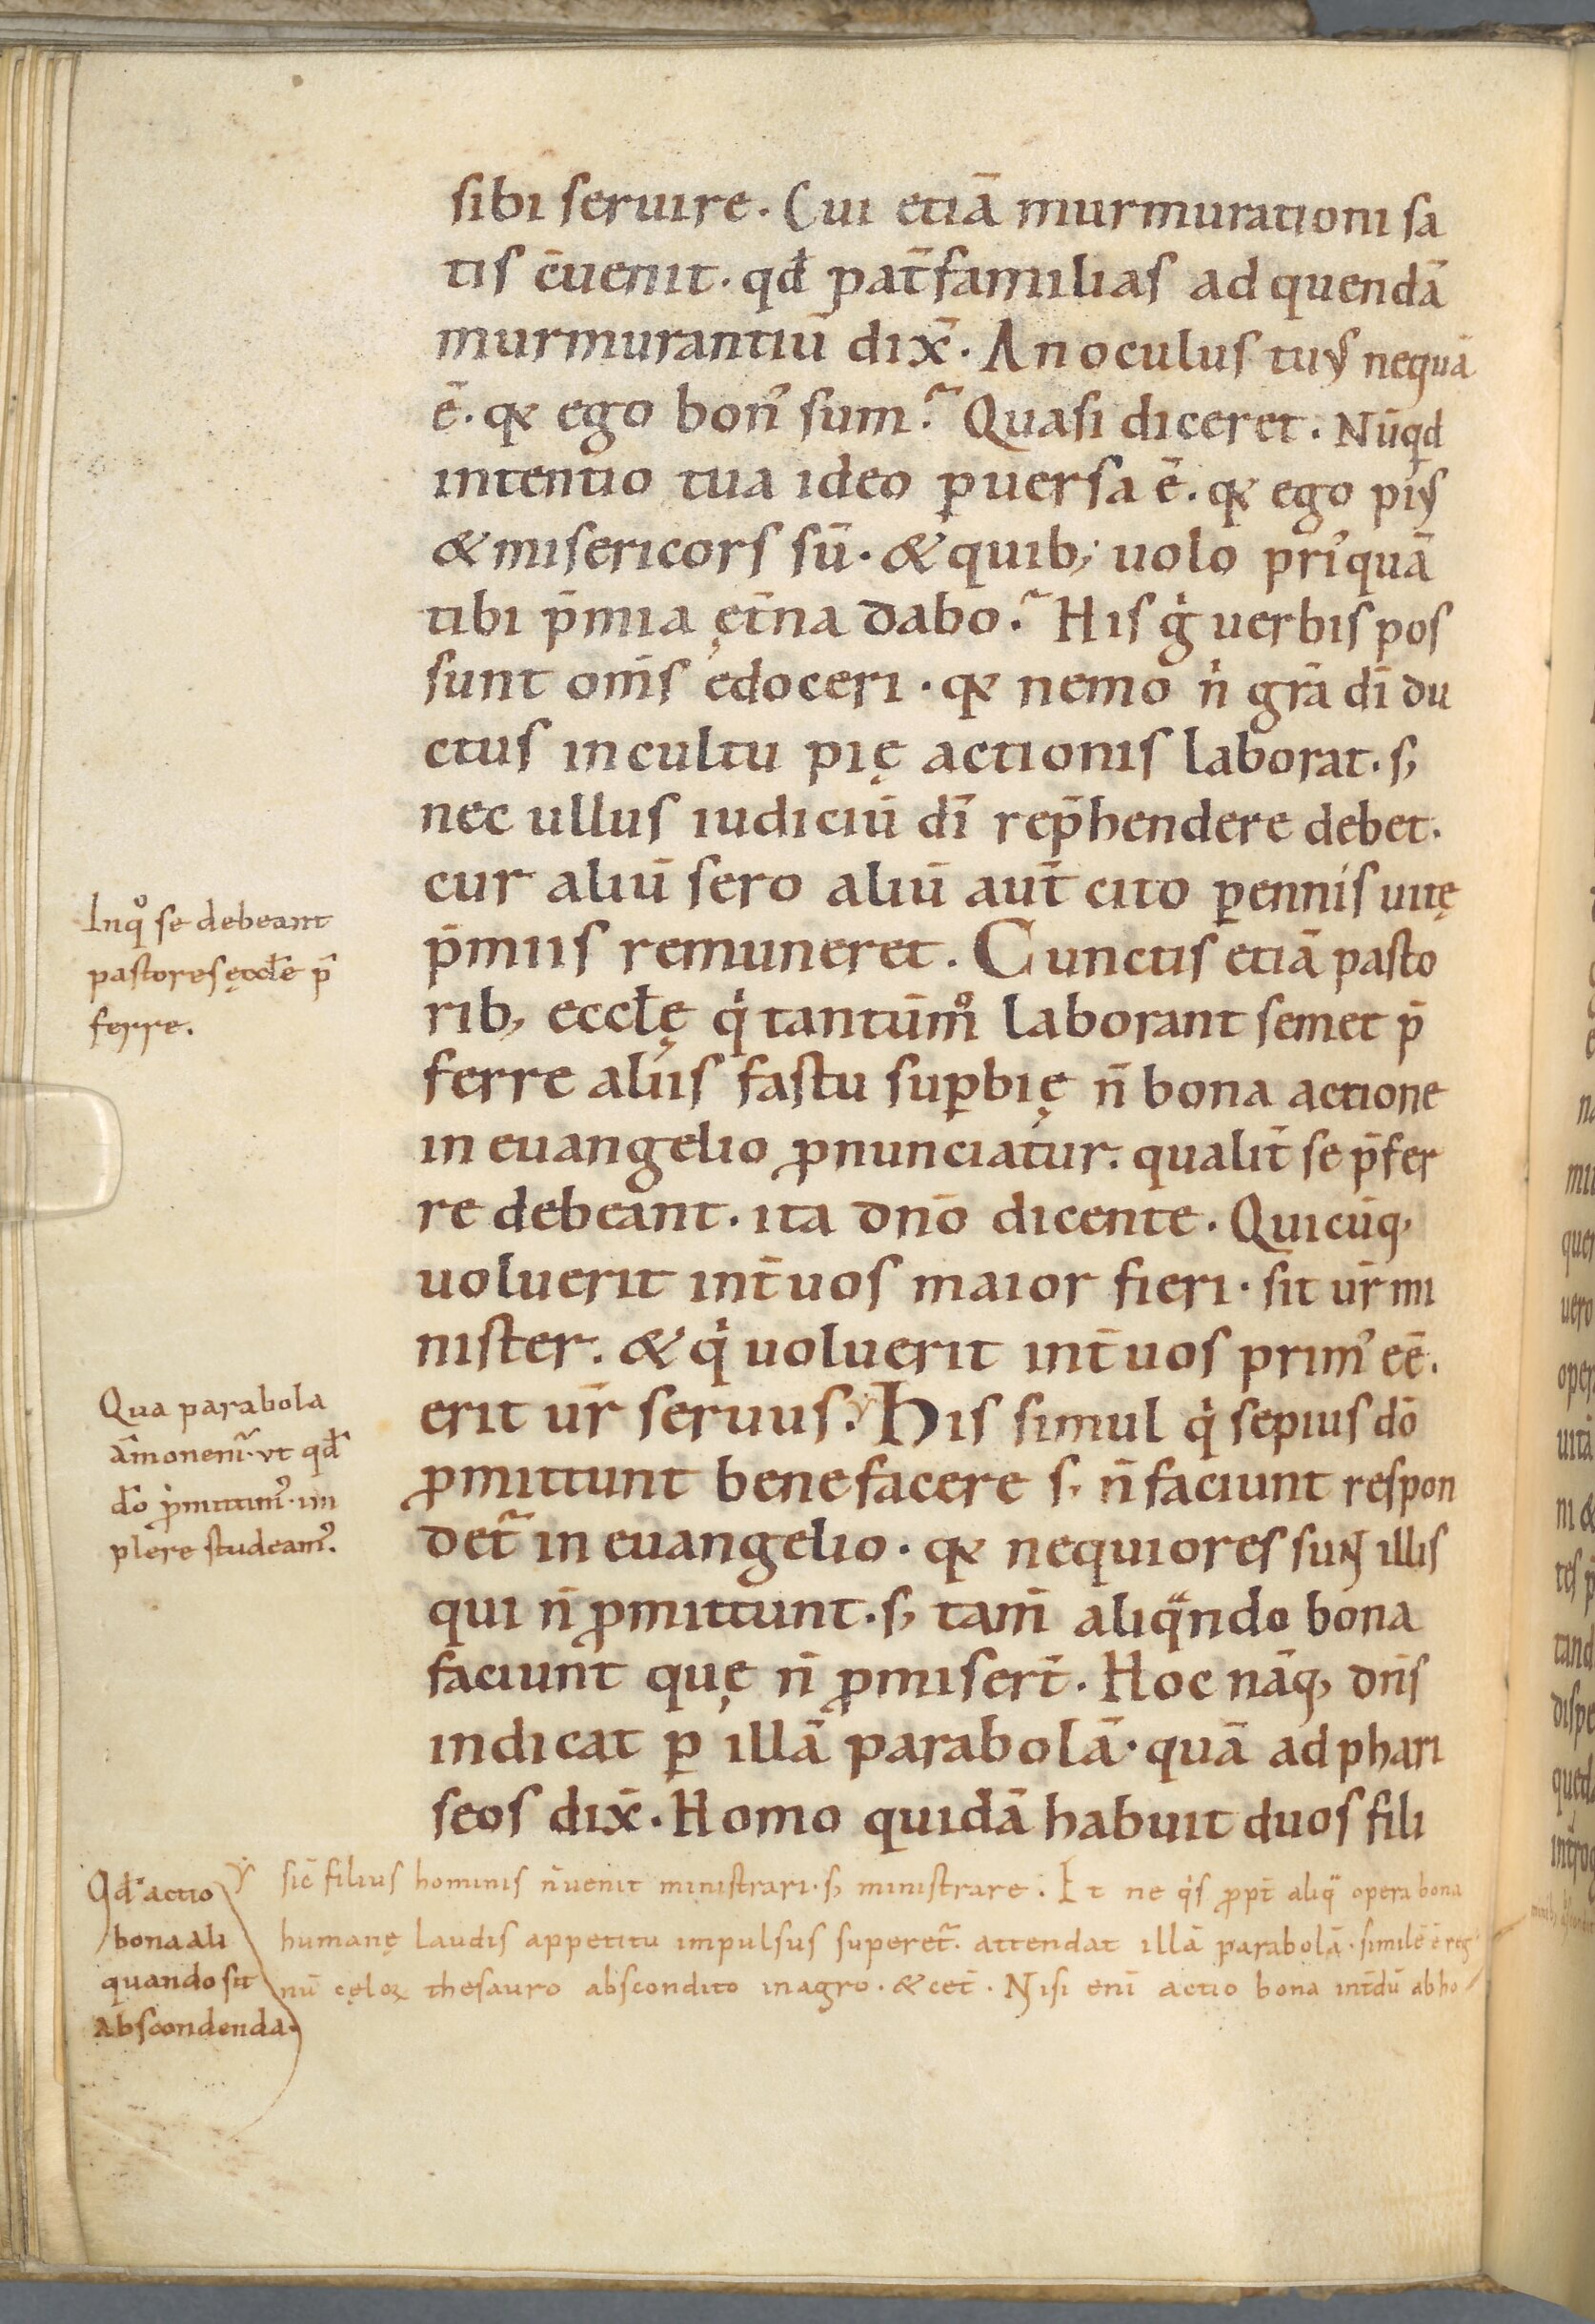 sibi seruire. Cui etiā murmurationi sa
tis ꝯ̄uenit. qđ pat̄familias ad quendā
murmurantiū dix̄. An oculus tuꝰ nequā
ē. qꝛ ego bonꝰ sum? Quasi diceret. Nūqd
intentio tua ideo ꝑuersa ē. qꝛ ego piꝰ
& misericors sū. & quib; uolo priꝰquā
tibi p̄mia ęt̄na dabo? His gͥ uerbis pos
sunt om̄s edoceri. qꝛ nemo nͥ grā dī du
ctus in cultu pię actionis laborat. s;
nec ullus iudiciū dī rep̄hendere debet.
cur aliū sero aliū aut̄ cito ꝑennis uitę
p̄miis remuneret. Cunctis etiā pasto
rib; eccłę qͥ tantūmͦ laborant semet p̄
ferre aliis fastu suꝑbię n̄ bona actione
in euangelio ꝓnunciatur. qualit̄ se p̄fer
re debeant. ita dnō dicente. Quicūq;
uoluerit int̄ uos maior fieri. sit ur̄ mi
nister. & qͥ uoluerit int̄ uos primꝰ eē.
erit ur̄ seruus. His simul qͥ sepius dō
ꝓmittunt benefacere s; n̄ faciunt respon
det᷑ in euangelio. qꝛ nequiores sunt illis
qui n̄ ꝓmittunt. s; tam̄ aliqͣndo bona
faciunt quę n̄ ꝓmisert̄. Hoc nāq; dn̄s
indicat ꝑ illā parabolā. quā ad phari
seos dix̄. Homo quidā habuit duos fili
Inqͦ se debeant
pastores ęccłe p̄
ferre.
Qua parabola
āmonem᷑ ut qđ
đo ꝓmittimꝰ im
plere studeamꝰ.
Qđ actio
bona ali
quando sit
abscondenda.
sic̄ filius hominis n̄ uenit ministrari. s; ministrare. Et ne qͥs ꝓpt̄ aliqͣ opera bona
humanę laudis appetitu impulsus superet᷑. attendat illā parabolā. simile ē reg
nū cęloꝝ thesauro abscondito in agro. & cet̄. Nisi enī actio bona int̄dū ab ho